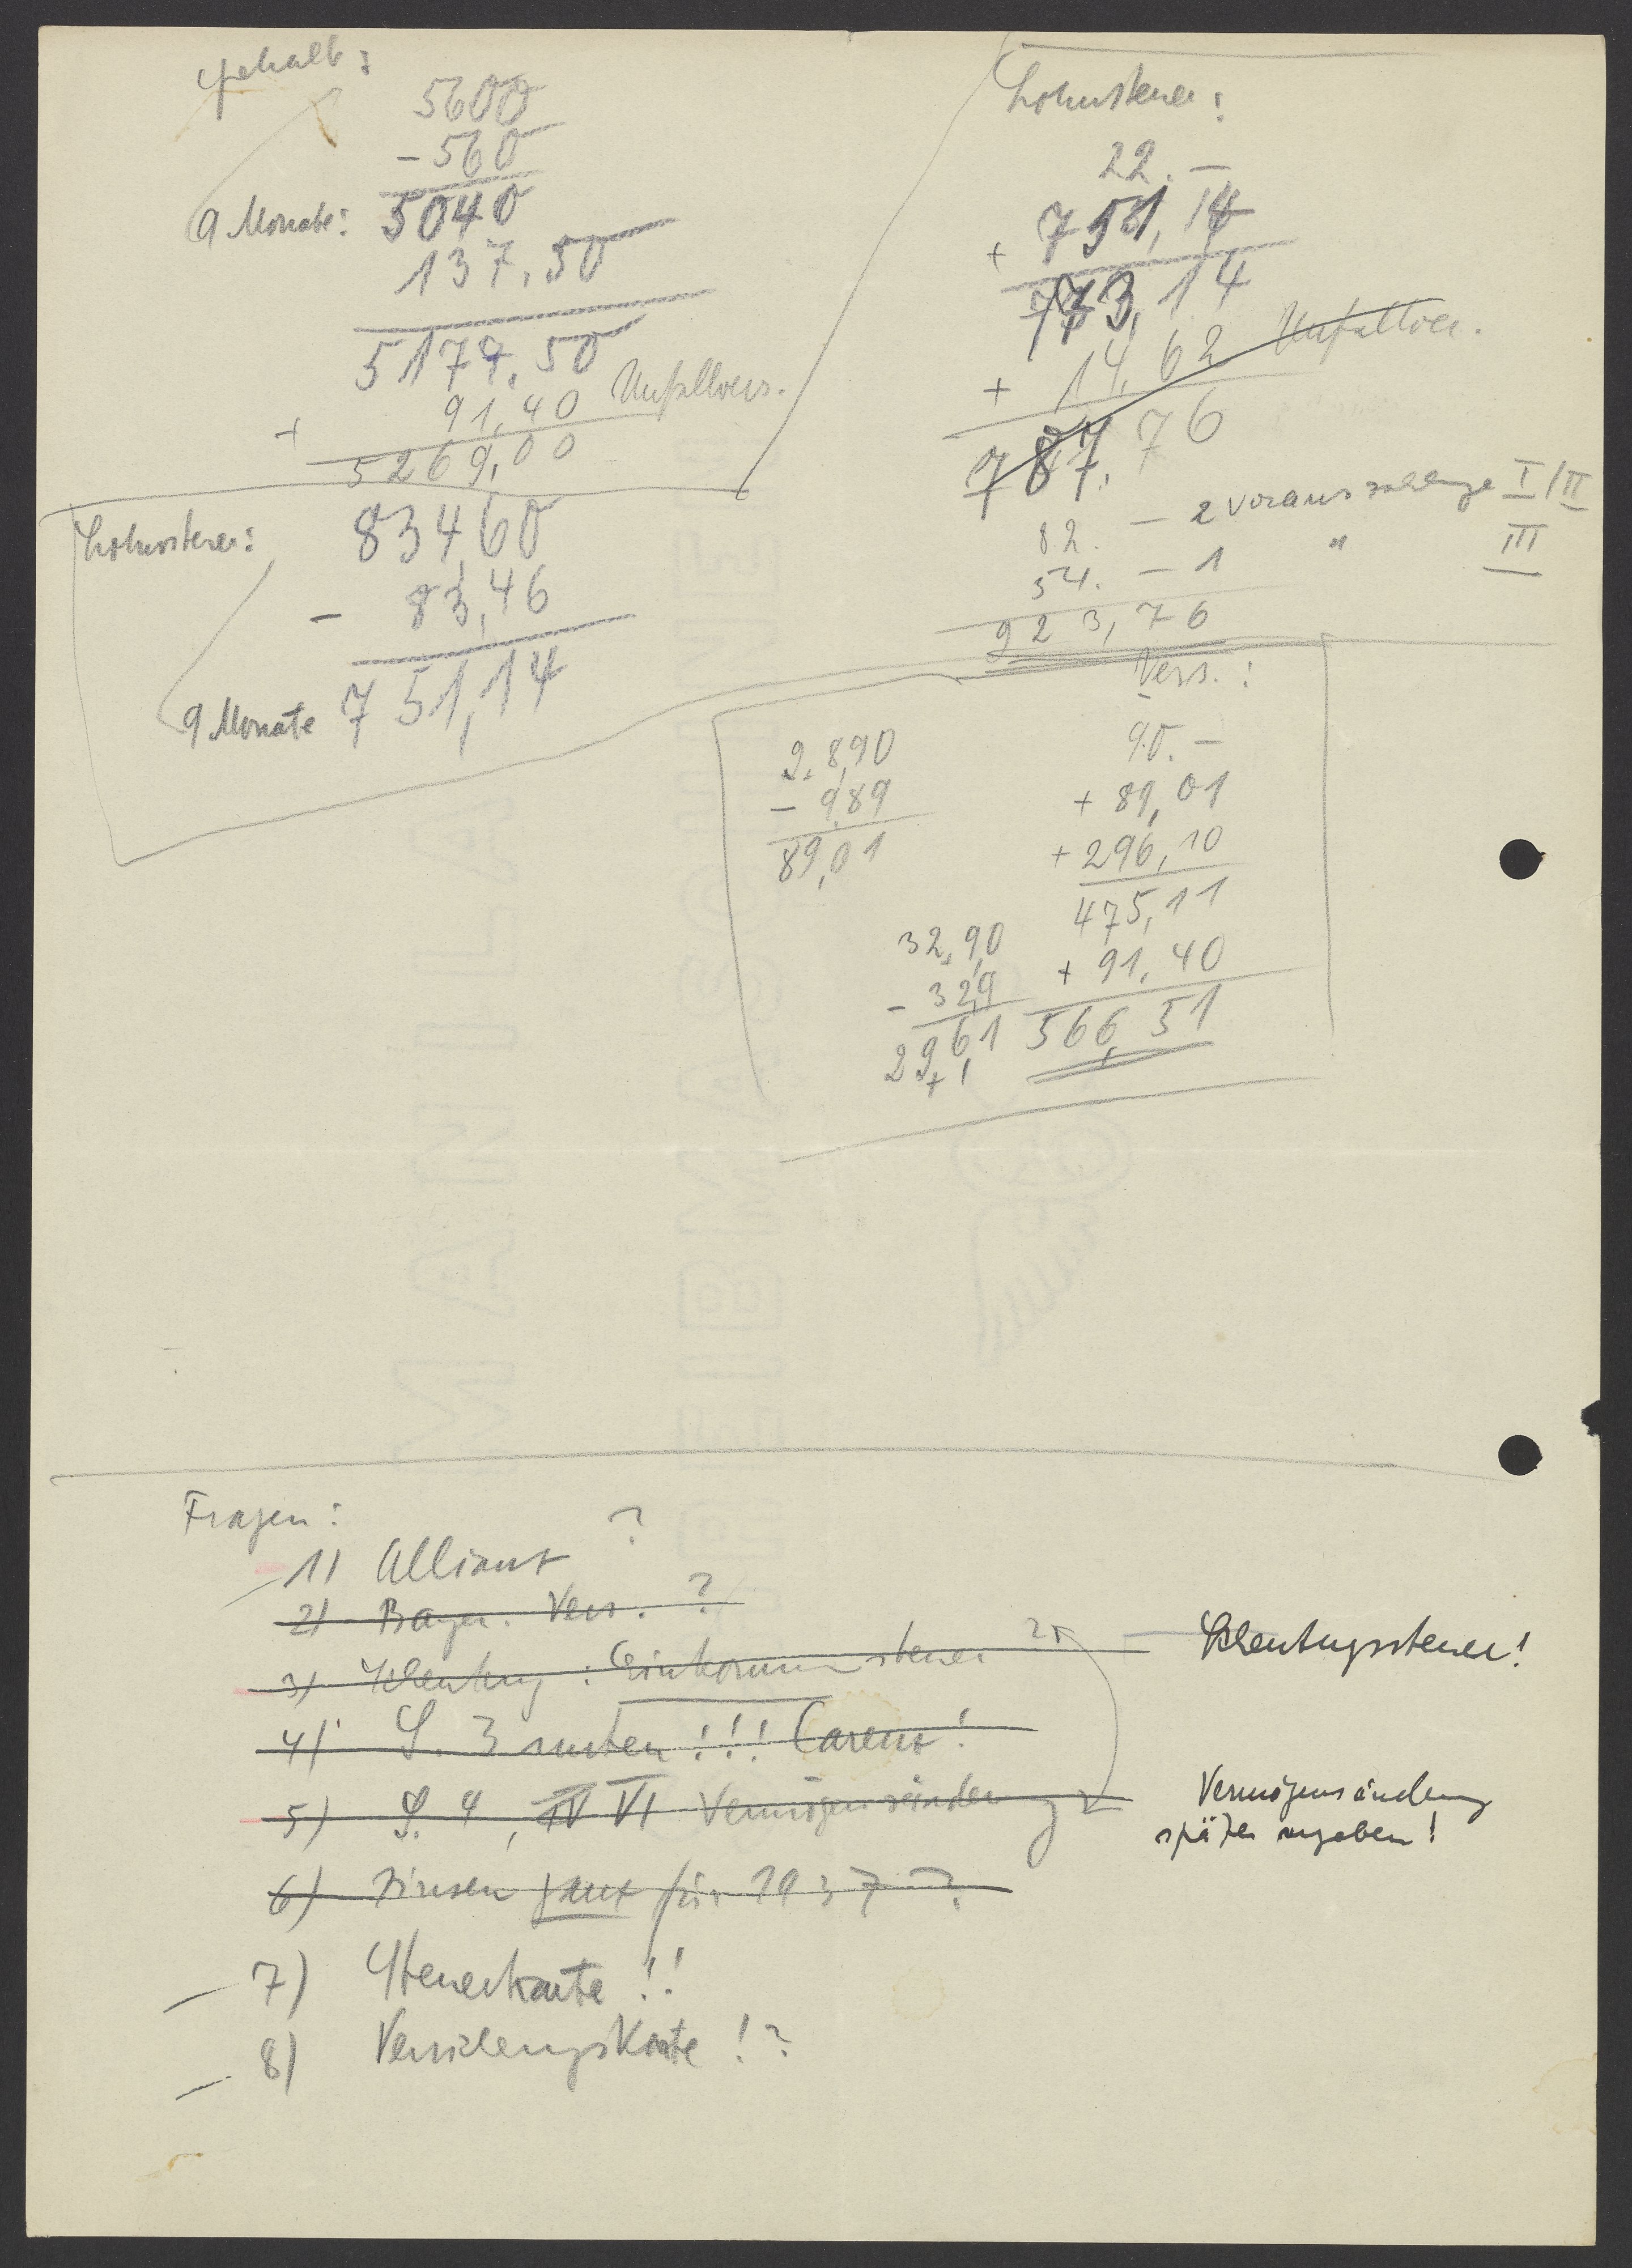 Gehalt:
5600
- 560
9 Monate: 5040
137.50
5177.50
+ 91,40 Unfallvers.
5269,00
Lohnsteuer:
83460
- 83,46
9 Monate 751,14
Lohnsteuer:
22.-
+ 751,14
773,14
+ 14,62 Unfallver.
787,76
82. - 2 Vorauszahlunge I/II
54. - 1 " III
923,76
Vers.:
9,890
- 989
89,01
90.-
+ 89,01
+ 296,10
475,11
+ 91,40
566,51
32,90
- 329
296,1
Fragen:
1) Allianz ?
2) Bayer. Vers. ?
3) Schenkung: Einkommensteuer
Schenkungssteuer!
4) S. 3 unten!!! Carenz!
5) S. 4, IV VI Vermögensänderung
Vermögensänderung
später angeben!
6) Zinsen ganz für 1937 ?
7) Steuerkarte!!
8) Versicherungskarte!?